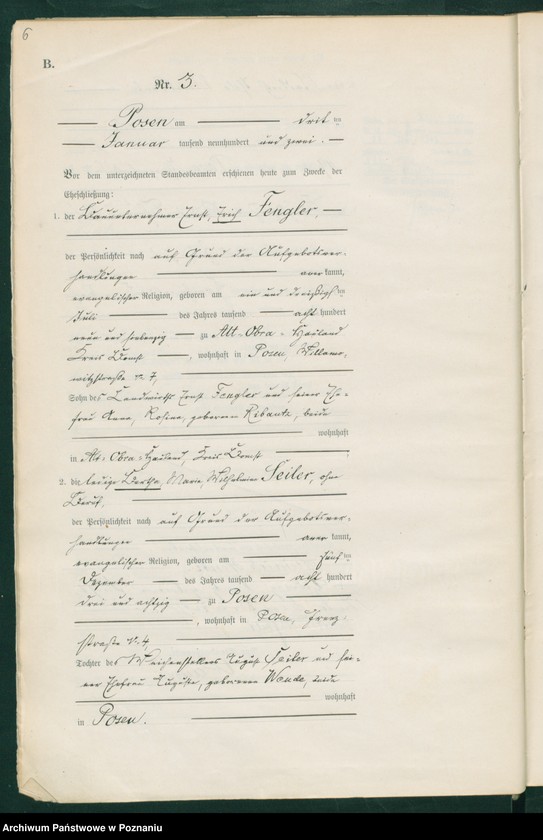 6
B.
Nr. 3.
Posen am drit ten
Januar tausend neunhundert und zwei.
Vor dem unterzeichneten Standesbeamten erschienen heute zum Zwecke der
Eheschließung:
1. der Bauunternehmer Ernst, Erich Fengler,
der Persönlichkeit nach auf Grund der Aufgebotsver-
handlungen aner kannt,
evangelischer Religion, geboren am ein und dreißigsten
Juli des Jahres tausend acht hundert
neun und siebenzig zu Alt-Obra-Hauland
Kreis Bomst, wohnhaft in Posen,
straße N. 7,
Sohn des Landwirths Ernst Fengler und seiner Ehe-
frau Anna, Rosina, geborenen beide
wohnhaft
in Alt-Obra-Hauland, Kreis Bomst
2. die ledige Bertha, Marie, Wilhelmine Seiler, ohne
Beruf,
der Persönlichkeit nach auf Grund der Aufgebotsver-
handlungen aner kannt,
evangelischer Religion, geboren am fünf ten
Dezember des Jahres tausend acht hundert
drei und achtzig zu Posen
, wohnhaft in Posen,
straße N. 4,
Tochter des Weichenstellers August Seiler und sei-
ner Ehefrau Auguste, geborenen beide
wohnhaft
in Posen.
Archiwum Państwowe w Poznaniu
Archiwum Państwowe w Poznaniu